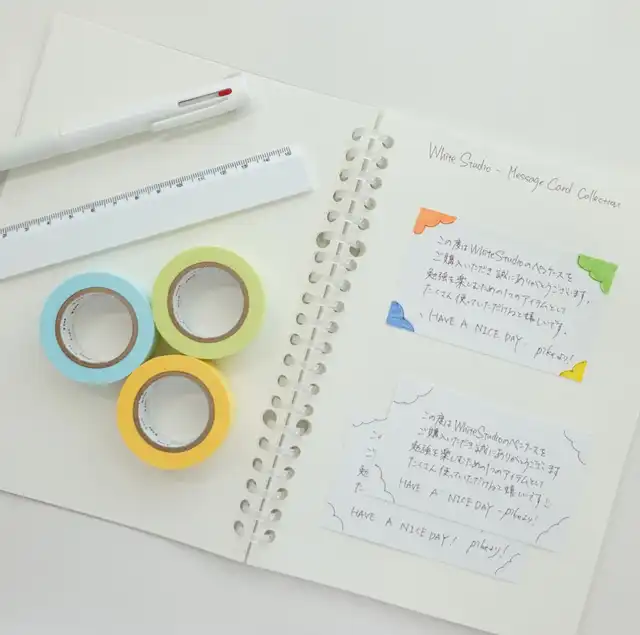 White Studio - Message Card Collection
この度はWhiteStudioのペンケースを
ご購入いただき誠にありがとうございます。
勉強を楽しむための1つのアイテムとして
たくさん使っていただけると嬉しいです。
HAVE A NICE DAY pikeより!
この度はWhiteStudioのペンケースを
ご購入いただき誠にありがとうございます
勉強を楽しむための1つのアイテムとして
たくさん使っていただけると嬉しいです
HAVE A NICE DAY - pikeより!
こ
ご
勉
た
HAVE A NICE DAY! pikeより!